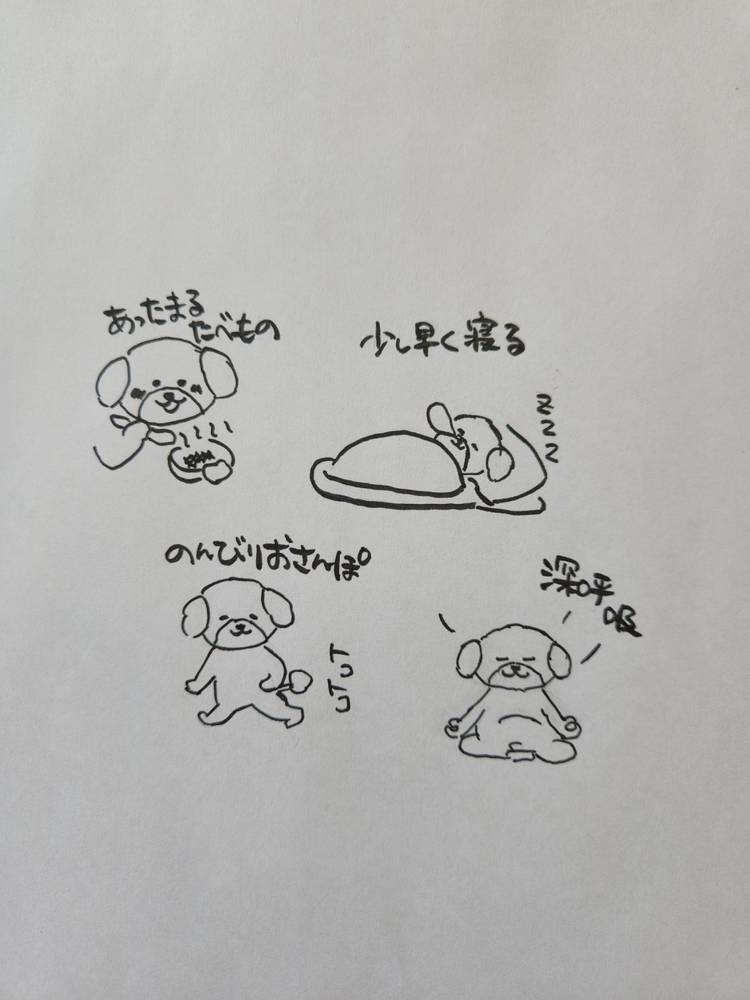 あったまる
たべもの
少し早く寝る
z
z
z
のんびりおさんぽ
トコ
トコ
深呼
吸